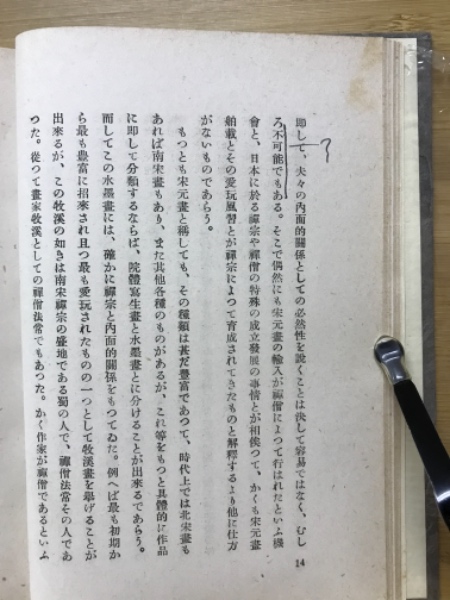 卽して、夫々の內面的關係としての必然性を說くことは決して容易ではなく、むし
ろ不可能でもある。そこで偶然にも宋元畫の輸入が禪僧によつて行はれたといふ機
會と、日本に於る禪宗や禪僧の特殊の成立發展の事情とが相俟つて、かくも宋元畫
舶載とその愛玩風習とが禪宗によつて育成されてきたものと解釋するより他に仕方
がないものであらう。
もつとも宋元畫と稱しても、その種類は甚だ豐富であつて、時代上では北宋畫も
あれば南宋畫もあり、また其他各種のものがあるが、これ等をもつと具體的に作品
に卽して分類するならば、院體寫生畫と水墨畫とに分けることが出來るであらう。
而してこの水墨畫には、確かに禪宗と內面的關係をもつてゐた。例へば最も初期か
ら最も豐富に招來され且つ最も愛玩されたものの一つとして牧溪畫を擧げることが
出來るが、この牧溪の如きは南宋禪宗の盛地である蜀の人で、禪僧法常その人であ
つた。從つて畫家牧溪としての禪僧法常でもあつた。かく作家が禪僧であるといふ
14